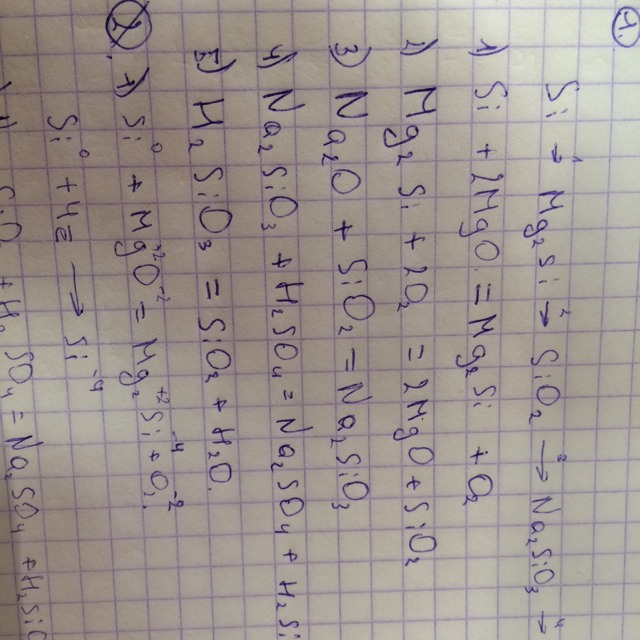 1
Si → Mg₂Si → SiO₂ → Na₂SiO₃ →
1) Si + 2MgO = Mg₂Si + O₂
2) Mg₂Si + 2O₂ = 2MgO + SiO₂
3) Na₂O + SiO₂ = Na₂SiO₃
4) Na₂SiO₃ + H₂SO₄ = Na₂SO₄ + H₂Si
5) H₂SiO₃ = SiO₂ + H₂O.
2
1) Si⁰ + Mg⁺²O⁻² = Mg₂⁺²Si⁻⁴ + O₂⁻².
Si⁰ + 4ē → Si⁻⁴
SO₄ = Na₂SO₄ + H₂SiO